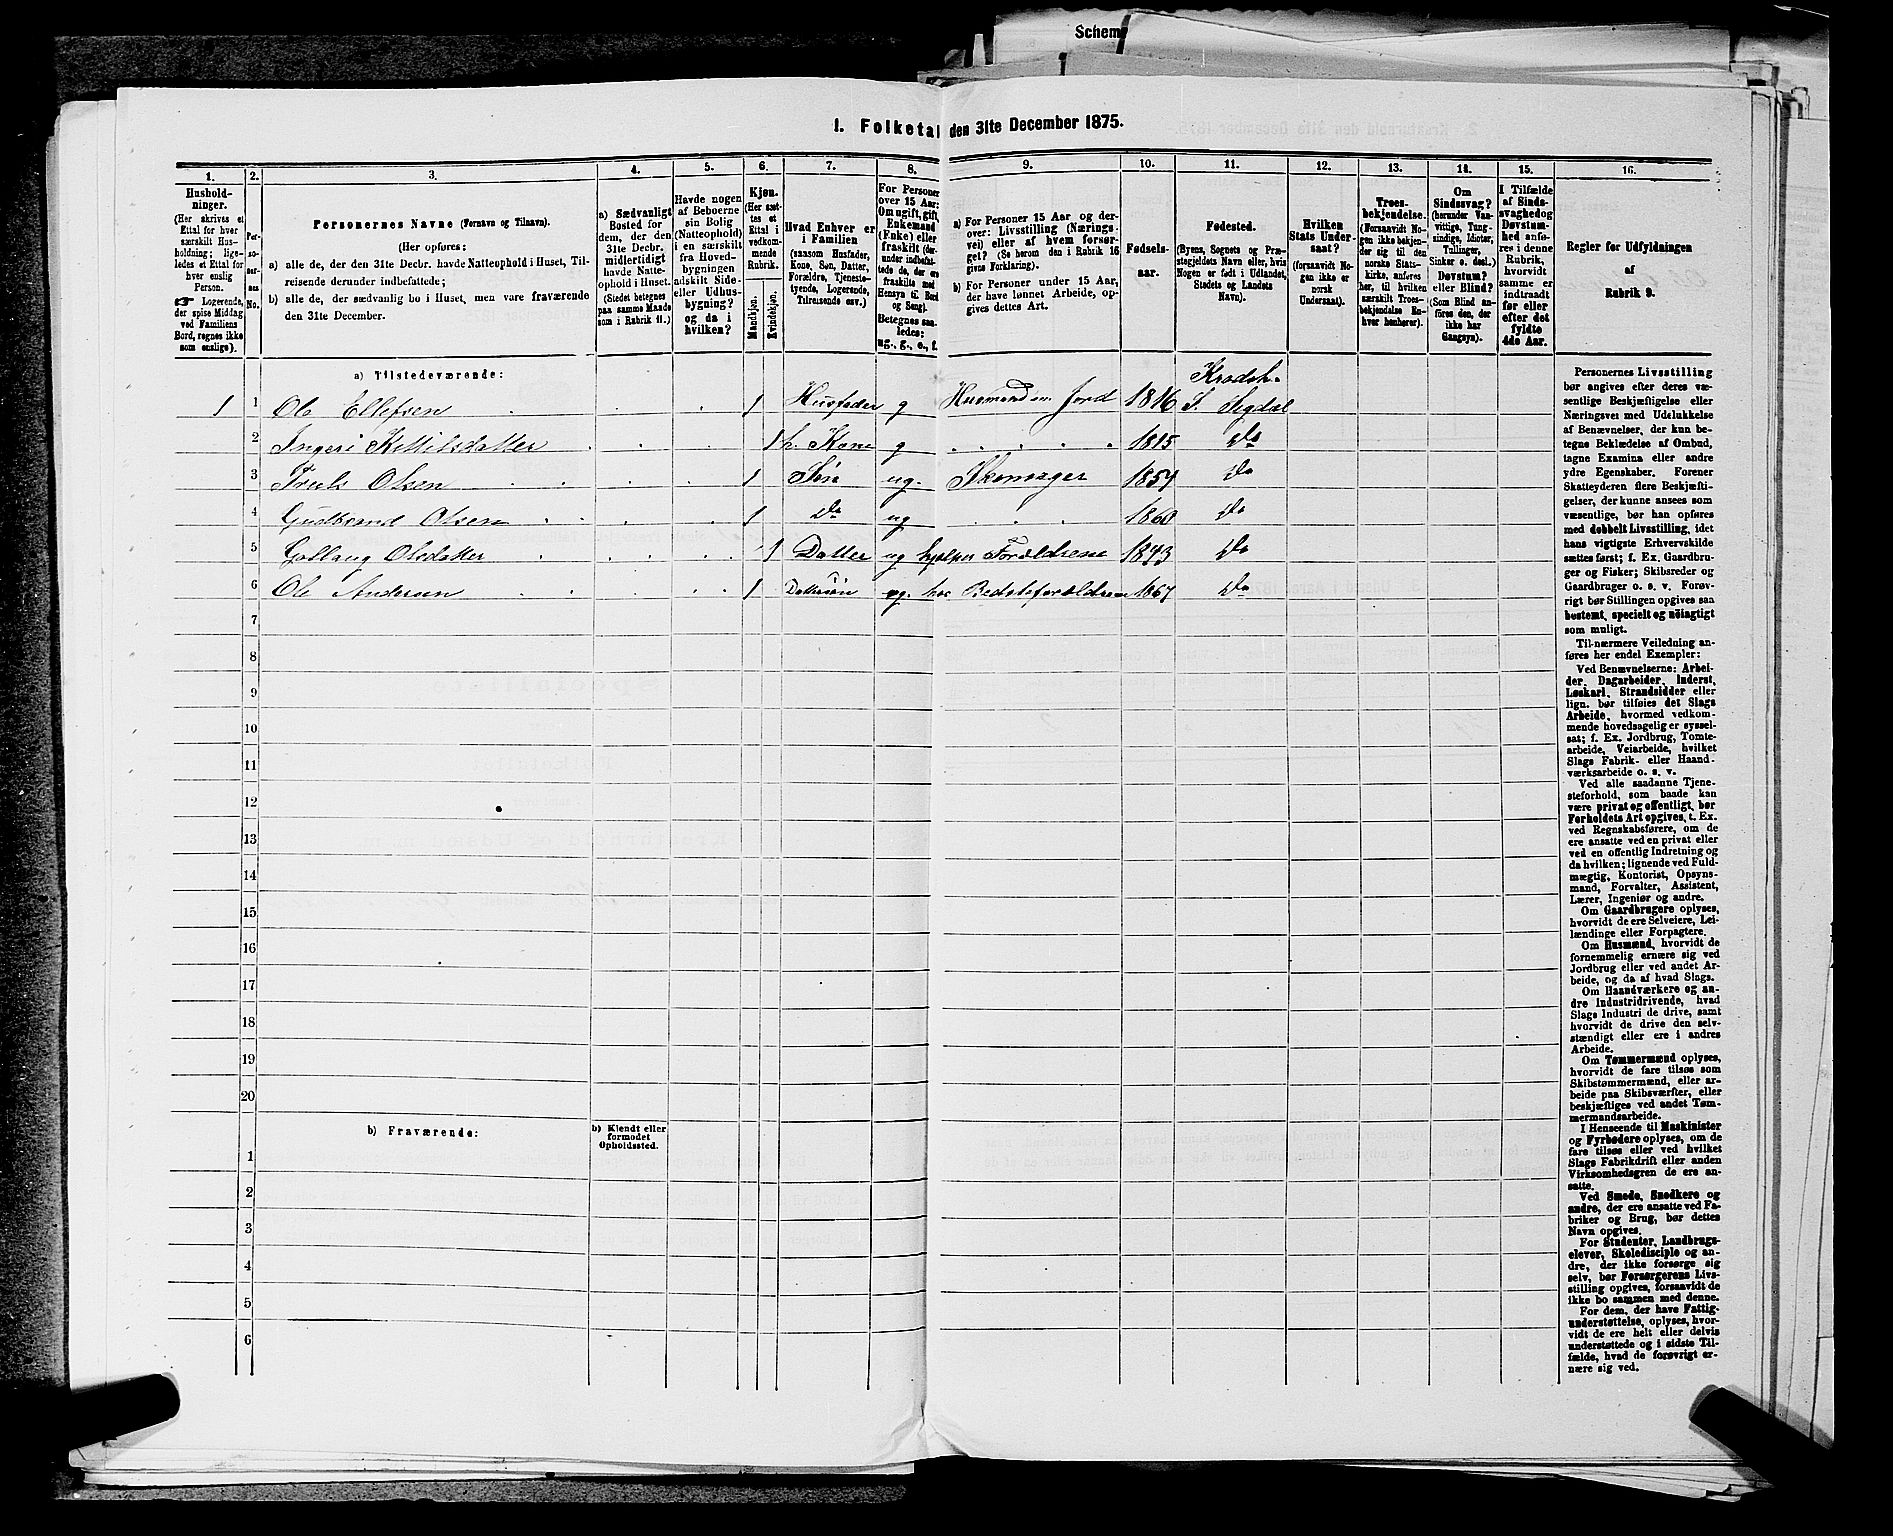 Schem
1. Folketal den 31te December 1875.
1. 2. 3. 4. 5. 6. 7. 8. 9. 10. 11. 12. 13. 14. 15. 16.
Hushold-
ninger.
(Her skrives et
Ettal for hver
særskilt Hus-
holdning; lige-
ledes et Ettal for
hver enslig
Person.
☞ Logerende,
der spise Middag
ved Familiens
Bord, regnes ikke
som enslige).
Per-
so-
ner-
nes
No.
Personernes Navne (Fornavn og Tilnavn).
(Her opføres:
a) alle de, der den 31te Decbr. havde Natteophold i Huset, Til-
reisende derunder indbefattede;
b) alle de, der sædvanlig bo i Huset, men vare fraværende
den 31te December.
a) Sædvanligt
Bosted for
dem, der den
31te Decbr.
midlertidigt
havde Natte-
ophold i Huset.
(Stedet betegnes
paa samme Maade
som i Rubrik 11.)
Havde nogen
af Beboerne
sin Bolig
(Natteophold)
i en særskilt
fra Hoved-
bygningen
adskilt Side-
eller Udhus-
bygning?
og da i
hvilken?
Kjøn.
(Her sæt-
tes et
Ettal i
vedkom-
mende
Rubrik.
Mandkjøn.
Kvindekjøn.
Hvad Enhver er
i Familien
(saasom Husfader,
Kone, Søn, Datter,
Forældre, Tjeneste-
tyende, Logerende,
Tilreisende osv.)
For Personer
over 15 Aar:
Om ugift, gift,
Enkemand
(Enke) eller
fraskilt (der-
under indbefat-
tede de, der ere
fraskilte med
Hensyn til Bord
og Seng).
Betegnes saa-
ledes:
ug., g., e., f.
a) For Personer 15 Aar og der-
over: Livsstilling (Nærings-
vei) eller af hvem forsør-
get? (Se herom den i Rubrik 16
givne Forklaring).
b) For Personer under 15 Aar,
der have lønnet Arbeide, op-
gives dettes Art.
Fødsels-
aar.
Fødested.
(Byens, Sognets og Præ-
stegjeldets Navn eller, hvis
Nogen er født i Udlandet,
Stedets og Landets
Navn).
Hvilken
Stats Under-
saat?
(forsaavidt No-
gen ikke er
norsk
Undersaat).
Troes-
bekjendelse.
(Forsaavidt No-
gen ikke bekjen-
der sig til den
norske Stats-
kirke, anføres
her, til hvilken
særskilt Troes-
bekjendelse En-
hver henhører).
Om
Sindssvag?
(herunder Van-
vittige, Tung-
sindige, Idioter,
Tullinger,
Sinker o. desl.)
Døvstum?
eller Blind?
(Som Blind an-
føres den, der
ikke har
Gangsyn).
I Tilfælde
af Sinds-
svaghed og
Døvstum-
hed anfø-
res i denne
Rubrik,
hvorvidt
samme er
indtraadt
før eller
efter det
fyldte
4de Aar.
Regler for Udfyldningen
af
Rubrik 9.
a) Tilstedeværende:
Kradsh.
1 1 Ole Ellefsen 1 Husfader g Husmand m. Jord 1816 S. Sigdal
2 Ingeri Kittilsdatter 1 h. Kone g 1815 Do
3 Truls Olsen 1 Søn ug. Skomager 1857 Do
4 Gudbrand Olsen 1 Do ug 1860 Do
5 Gollaug Olsdatter 1 Datter ug hjelper Forældrene 1843 Do
6 Ole Andersen 1 Dattersøn ug. hos Bedsteforældrene 1867 Do
7
8
9
10
11
12
13
14
15
16
17
18
19
20
b) Fraværende:
b) Kjendt eller
formodet
Opholdssted.
1
2
3
4
5
6
Personernes Livsstilling
bør angives efter deres væ-
sentlige Beskjæftigelse eller
Næringsvei med Udelukkelse
af Benævnelser, der kun be-
tegne Beklædelse af Ombud,
tagne Examina eller andre
ydre Egenskaber. Forener
Skatteyderen flere Beskjæfti-
gelser, der kunne ansees som
væsentlige, bør han opføres
med dobbelt Livsstilling, idet
hans vigtigste Erhvervskilde
sættes først; f. Ex. Gaardbru-
ger og Fisker; Skibsreder og
Gaardbruger o. s. v. Forøv-
rigt bør Stillingen opgives saa
bestemt, specielt og nøiagtigt
som muligt.
Til nærmere Veiledning an-
føres her endel Exempler:
Ved Benævnelserne: Arbei-
der, Dagarbeider, Inderst,
Løskarl, Strandsidder eller
lign. bør tilføies det Slags
Arbeide, hvormed vedkom-
mende hovedsagelig er syssel-
sat; f. Ex. Jordbrug, Tomte-
arbeide, Veiarbeide, hvilket
Slags Fabrik- eller Haand-
værksarbeide o. s. v.
Ved alle saadanne Tjene-
steforhold, som baade kan
være privat og offentligt, bør
Forholdets Art opgives, t. Ex.
ved Regnskabsførere, om de
ere ansatte ved en privat eller
ved en offentlig Indretning og
da hvilken; lignende ved Fuld-
mægtig, Kontorist, Opsyns-
mand, Forvalter, Assistent,
Lærer, Ingeniør og andre.
Om Gaardbrugere oplyses,
hvorvidt de ere Selveiere, Lei-
lændinge eller Forpagtere.
Om Husmænd, hvorvidt de
fornemmelig ernære sig ved
Jordbrug eller ved andet Ar-
beide, og da af hvad Slags.
Om Haandværkere og an-
dre Industridrivende, hvad
Slags Industri de drive, samt
hvorvidt de drive den selv-
stændigt eller ere i andres
Arbeide.
Om Tømmermænd oplyses,
hvorvidt de fare tilsøs som
Skibstømmermænd, eller ar-
beide paa Skibsværfter, eller
beskjæftiges ved andet Tøm-
mermandsarbeide.
I Henseende til Maskinister
og Fyrbødere oplyses, om de
fare tilsøs eller ved hvilket
Slags Fabrikdrift eller anden
Virksomhedsgren de ere an-
satte.
Ved Smede, Snedkere og
andre, der ere ansatte ved Fa-
briker og Brug, bør dettes
Navn opgives.
For Studenter, Landbrugs-
elever, Skoledisciple og an-
dre, der ikke forsørge sig
selv, bør Forsørgerens Livs-
stilling opgives, forsaavidt de
ikke bo sammen med denne.
For dem, der have Fattig-
understøttelse, oplyses, hvor-
vidt de ere helt eller delvis
understøttede og i sidste Til-
fælde, hvad de forøvrigt er-
nære sig ved.